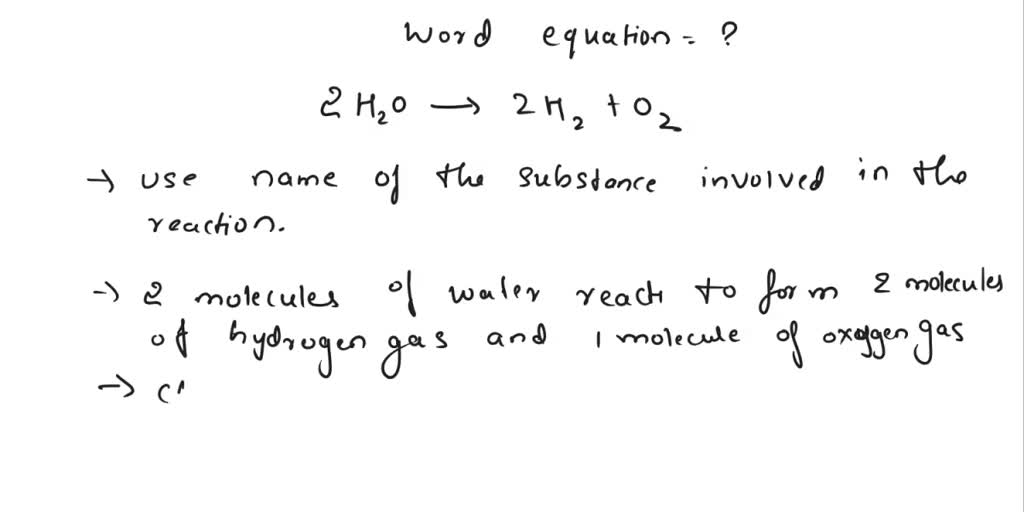 Word equation = ?
2 H₂O → 2 H₂ + O₂
→ use name of the substance involved in the
reaction.
→ 2 molecules of water react to form 2 molecules
of hydrogen gas and 1 molecule of oxygen gas
→